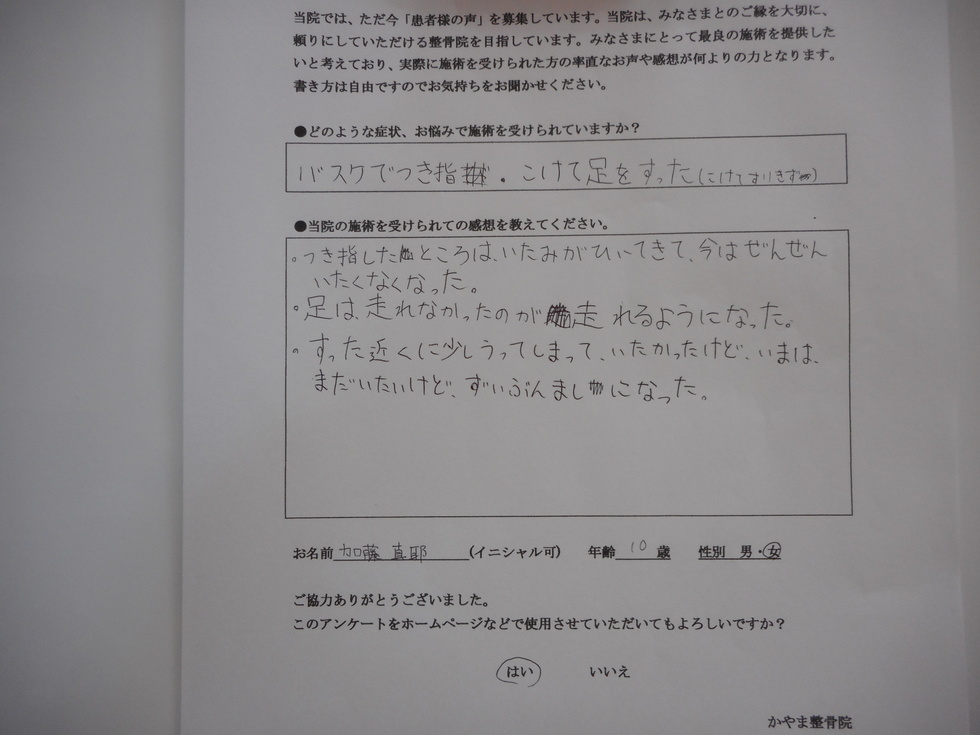 当院では、ただ今「患者様の声」を募集しています。当院は、みなさまとのご縁を大切に、
頼りにしていただける整骨院を目指しています。みなさまにとって最良の施術を提供した
いと考えており、実際に施術を受けられた方の率直なお声や感想が何よりの力となります。
書き方は自由ですのでお気持ちをお聞かせください。
●どのような症状、お悩みで施術を受けられていますか？
バスケでつき指。こけて足をすった(こけてすりきず)
●当院の施術を受けられての感想を教えてください。
。つき指したところは、いたみがひいてきて、今はぜんぜん
いたくなくなった。
。足は、走れなかったのが走れるようになった。
。すった近くに少しうってしまって、いたかったけど、いまは、
まだいたいけど、ずいぶんましになった。
お名前 加藤 真耶 (イニシャル可) 年齢 10 歳 性別 男・女
ご協力ありがとうございました。
このアンケートをホームページなどで使用させていただいてもよろしいですか？
はい いいえ
かやま整骨院